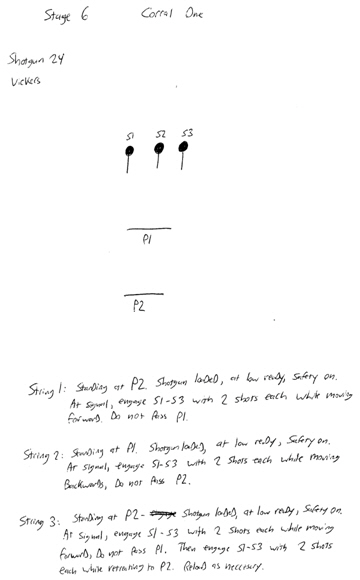 Stage 6 Corral One
Shotgun 24
Vickers
S1 S2 S3
P1
P2
String 1: Standing at P2. Shotgun loaded, at low ready, safety on.
At signal, engage S1-S3 with 2 shots each while moving
forward. Do not pass P1.
String 2: Standing at P1. Shotgun loaded, at low ready, safety on.
At signal, engage S1-S3 with 2 shots each while moving
Backwards, Do not pass P2.
String 3: Standing at P2- Shotgun loaded, at low ready, safety on.
At signal, engage S1-S3 with 2 shots each while moving
forward, Do not pass P1. Then engage S1-S3 with 2 shots
each while retreating to P2. Reload as necessary.